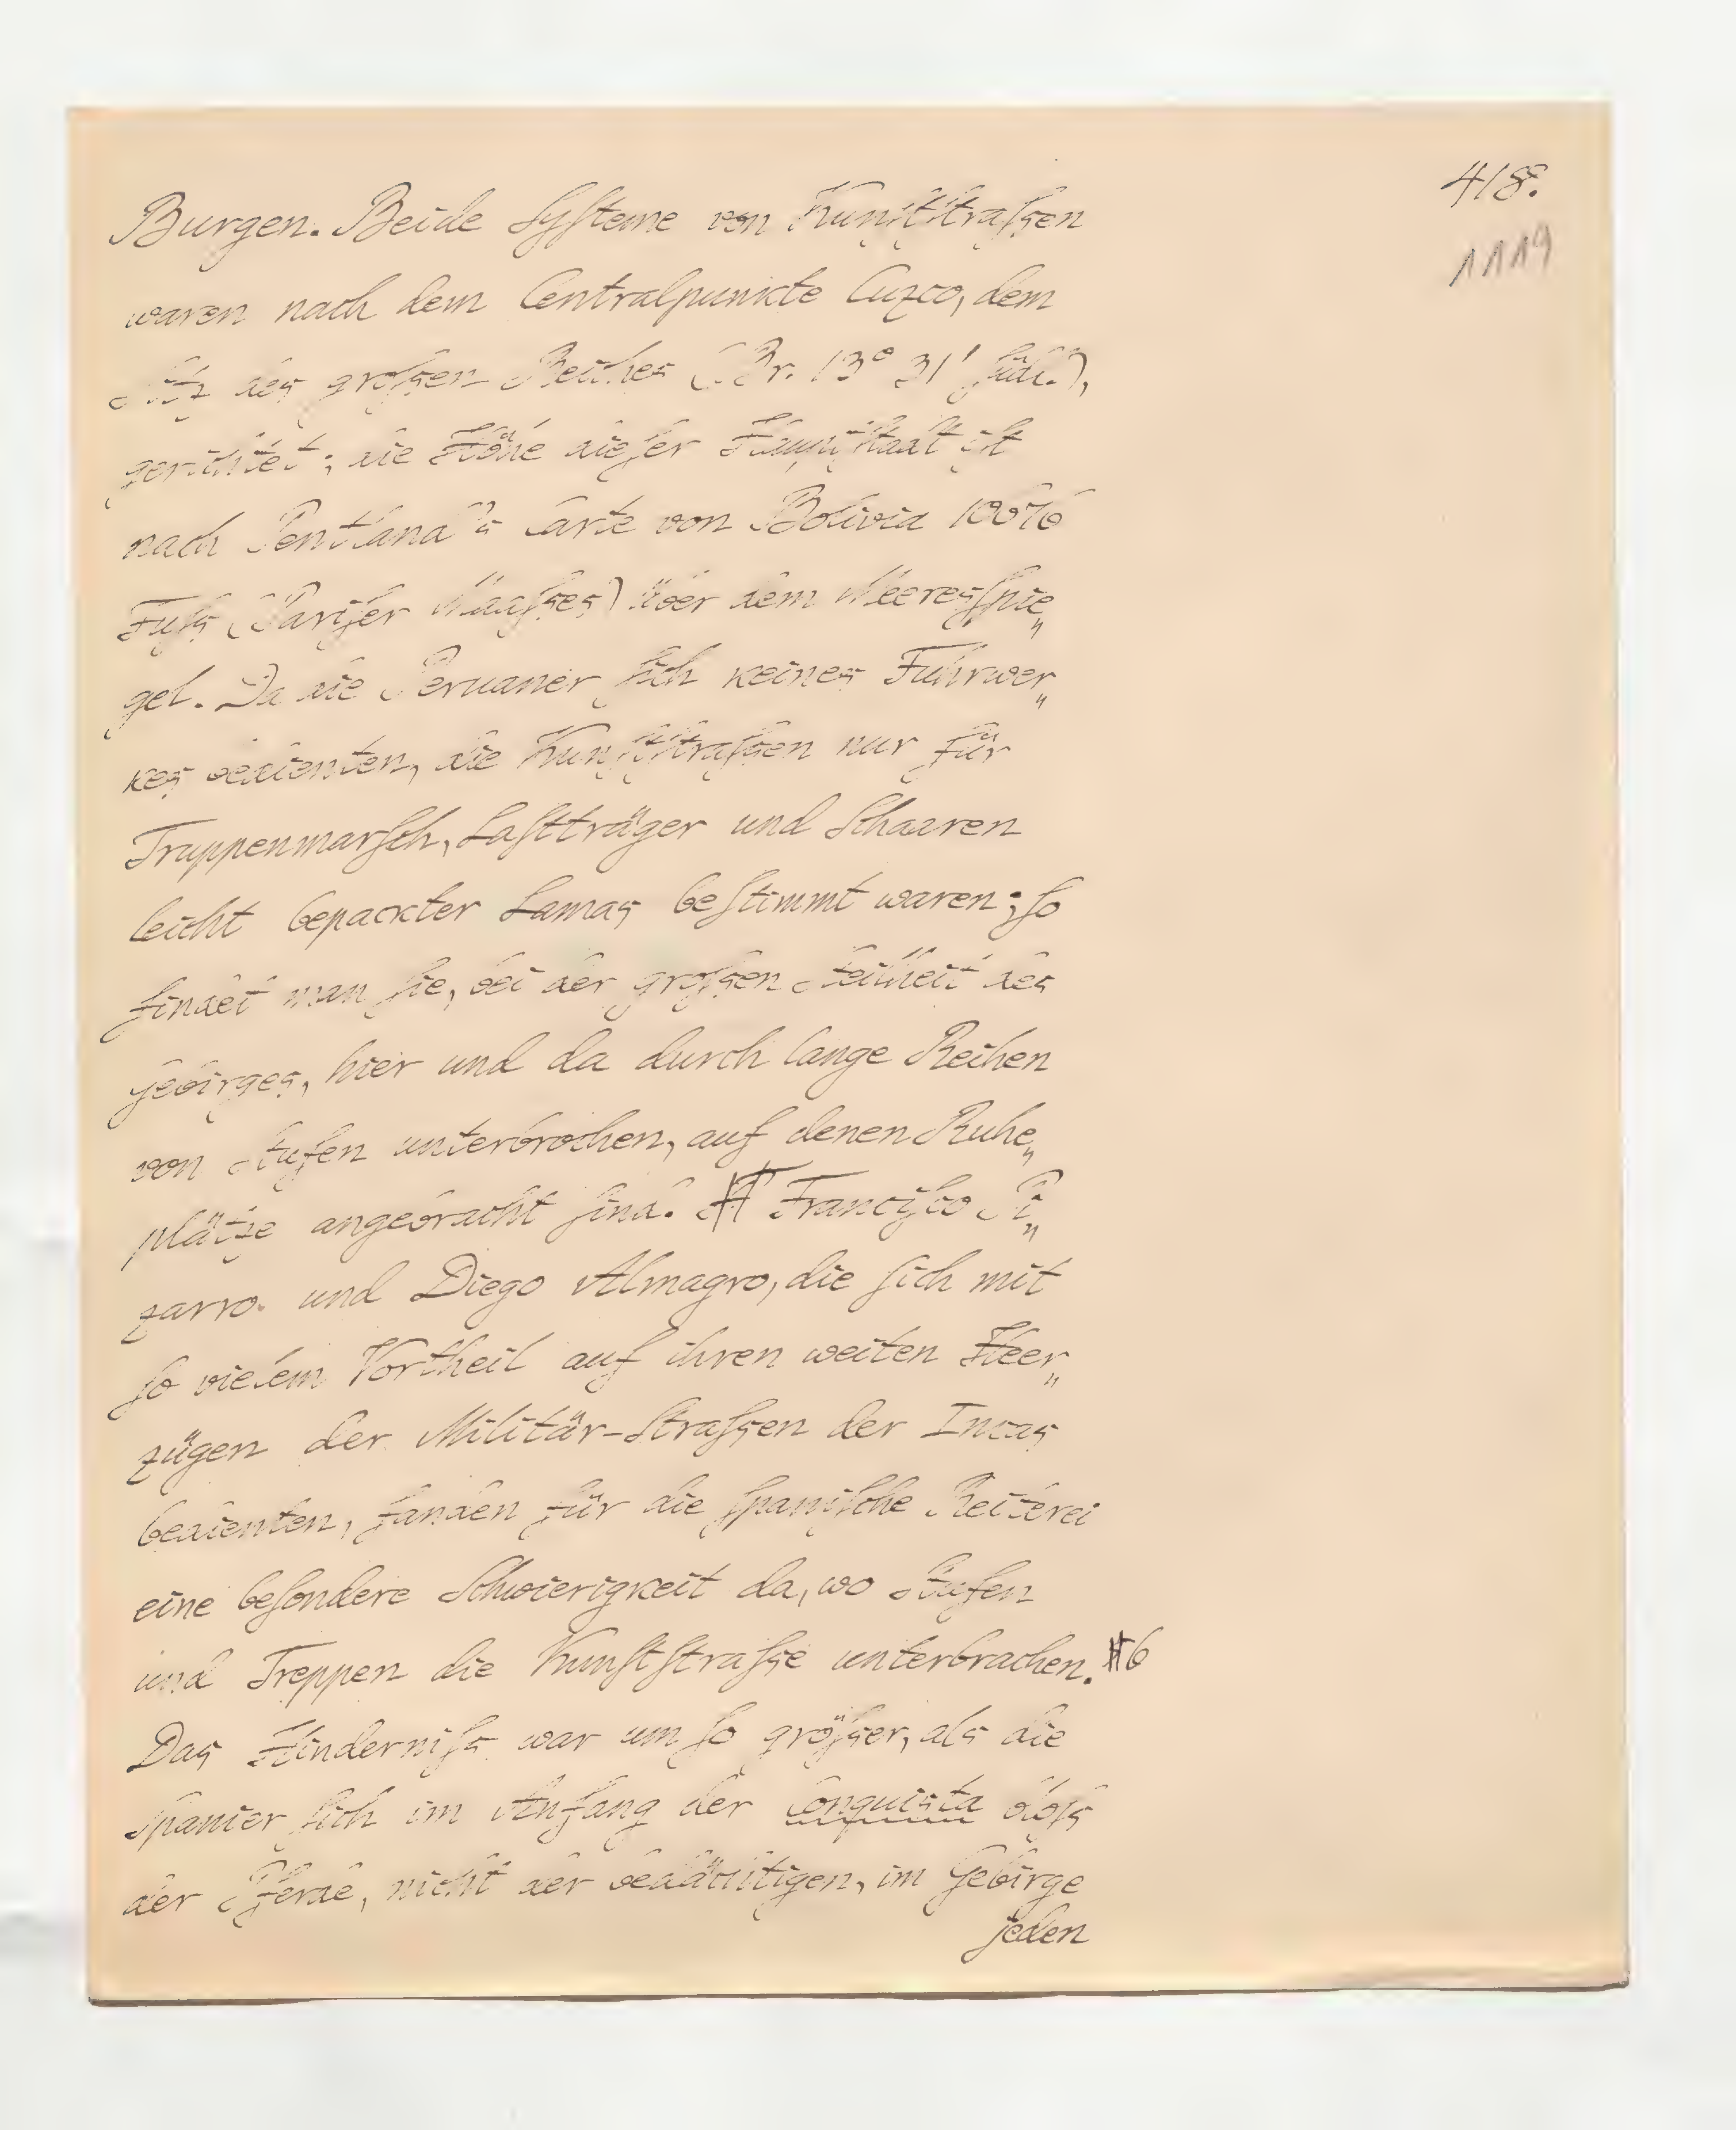 418.
1119
Burgen. Beide Systeme von Kunststraßen
waren nach dem Centralpunkte Cuzco, dem
Sitz des großen Reiches (Br. 13° 31' südl.),
gerichtet; die Höhe dieser Hauptstadt ist
nach Pentland's Carte von Bolivia 10676
Fuß (Pariser Maaßes) über dem Meeresspie„
gel. Da die Peruaner sich keines Fuhrwer„
kes bedienten, die Kunststraßen nur für
Truppenmarsch, Lastträger und Schaaren
leicht bepackter Lamas bestimmt waren; so
findet man sie, bei der großen Steilheit des
Gebirges, hier und da durch lange Reihen
von Stufen unterbrochen, auf denen Ruhe„
plätze angebracht sind. Francisco Pi„
zarro und Diego Almagro, die sich mit
so vielem Vortheil auf ihren weiten Heer„
zügen der Militär-Straßen der Incas
bedienten, fanden für die spanische Reiterei
eine besondere Schwierigkeit da, wo Stufen
und Treppen die Kunststraße unterbrachen. 6
Das Hinderniß war um so größer, als die
Spanier sich im Anfang der Conquista bloß
der Pferde, nicht der bedächtigen, im Gebirge
jeden